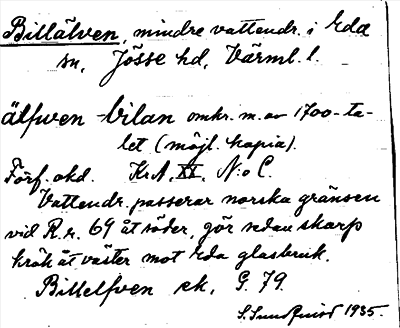 Billälven, mindre vattendr. i Eda
sn, Jösse hd, Värml. l.
älfwen bilan omkr. m. av 1700-ta-
let (möjl. kopia).
Förf. okd. KrA, XX, N:o C.
Vattendr. passerar norska gränsen
vid R.r. 69 åt söder, gör sedan skarp
krök åt väster mot Eda glasbruk.
Billelfven ek. G. 79.
S. Sundquist 1935.